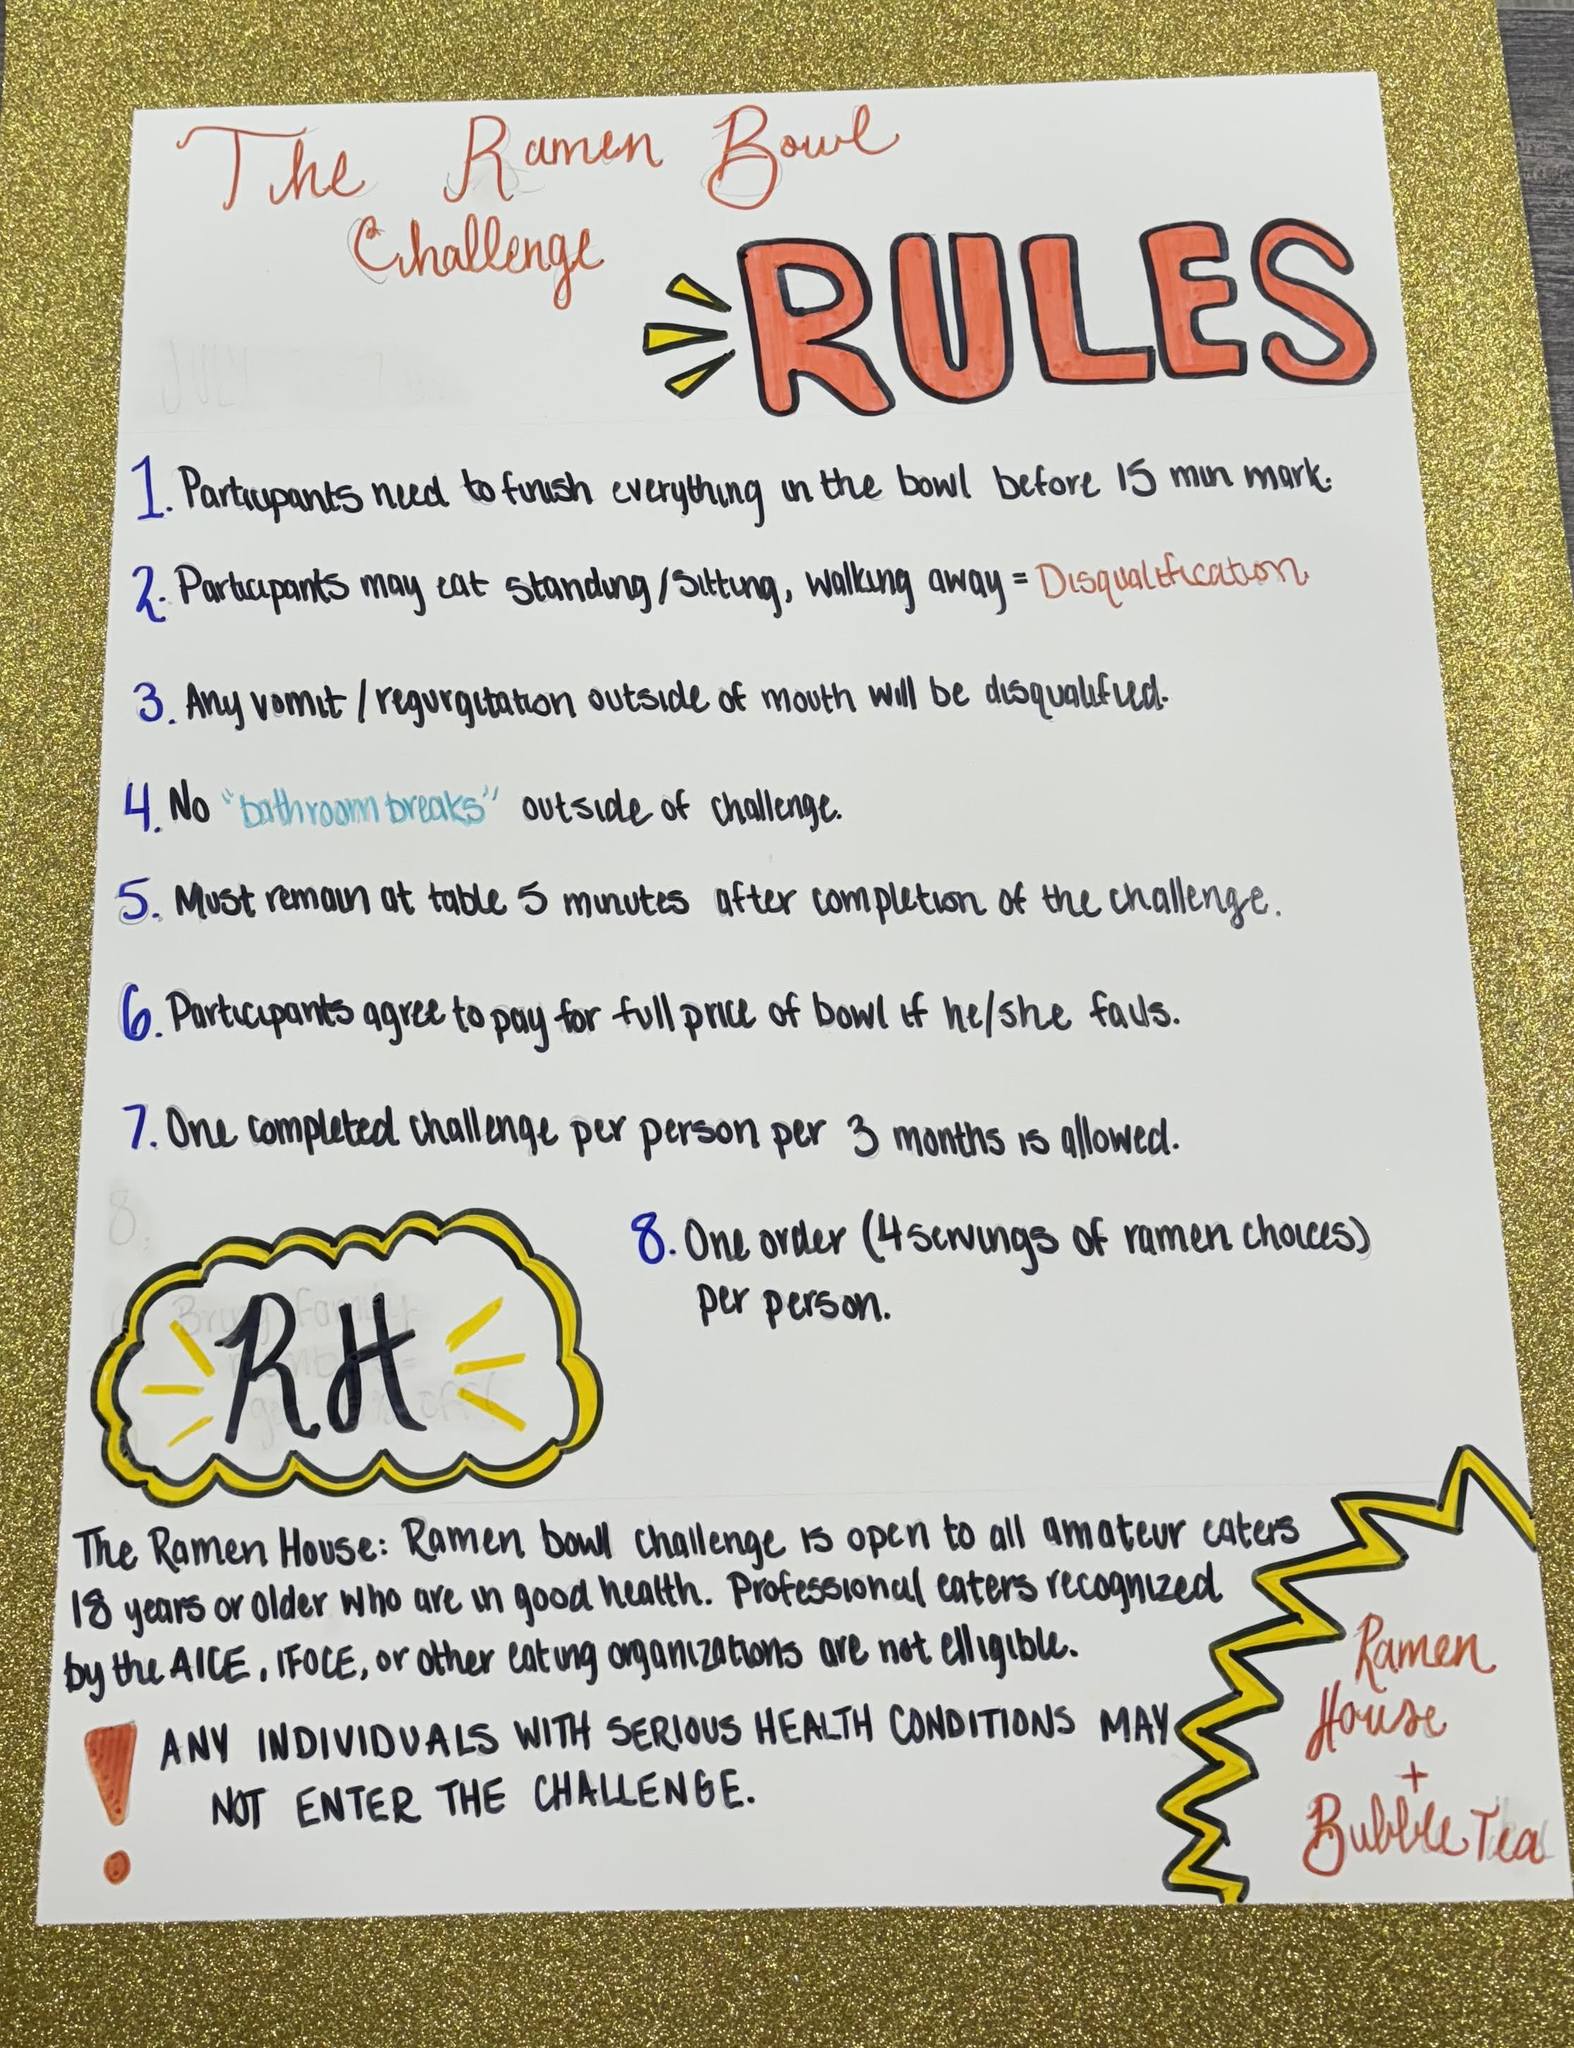 The Ramen Bowl
Challenge
RULES
JULY
1. Participants need to finish everything in the bowl before 15 min mark.
2. Participants may eat standing/sitting, walking away = Disqualification
3. Any vomit/regurgitation outside of mouth will be disqualified.
4. No "bathroom breaks" outside of challenge.
5. Must remain at table 5 minutes after completion of the challenge.
6. Participants agree to pay for full price of bowl if he/she fails.
7. One completed challenge per person per 3 months is allowed.
8.
8. One order (4 servings of ramen choices)
per person.
RH
The Ramen House: Ramen bowl challenge is open to all amateur eaters
18 years or older who are in good health. Professional eaters recognized
by the AICE, IFOCE, or other eating organizations are not elligible.
! ANY INDIVIDUALS WITH SERIOUS HEALTH CONDITIONS MAY
NOT ENTER THE CHALLENGE.
Ramen
House
+
Bubble Tea